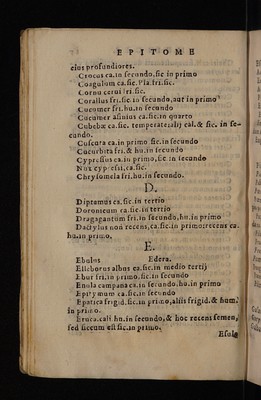 EPITOME
eius profundiores.
Crocus ca.in secundo.sic in primo
Coagulum ca.sic. Pla:fri.sic.
Cornu cerui fri.sic.
Corallus fri.sic in secundo, aut in primo
Cucumer fri.hu.in secundo
Cucumer asinius ca.sic.in quarto
Cubebæ ca.sic. temperate:alij cal.& sic. in se-
cundo.
Cuscuta ca.in primo.sic.in secundo
Cucurbita fri.& hu.in secundo
Cypressus ca.in primo, sic.in secundo
Nux cypressi, ca.sic.
Chrysomela fri.hu.in secundo.
D.
Diptamus ca.sic.in tertio
Doronicum ca.sic.in tertio
Dragagantum fri.in secundo, hu.in primo
Dactylus non recens, ca.sic.in primo:recens ca.
hu.in primo.
E.
Ebulus Edera.
Elleborus albus ca.sic.in medio tertij
Ebur fri.in primo.sic.in secundo
Enula campana ca.in secundo.hu.in primo
Epitymum ca.sic.in secundo
Epatica frigid.sic.in primo, alijs frigid.& hum.
in primo.
Eruca.cali.hu.in secundo, & hoc recens semen,
sed siccum est sic.in primo.
Esula